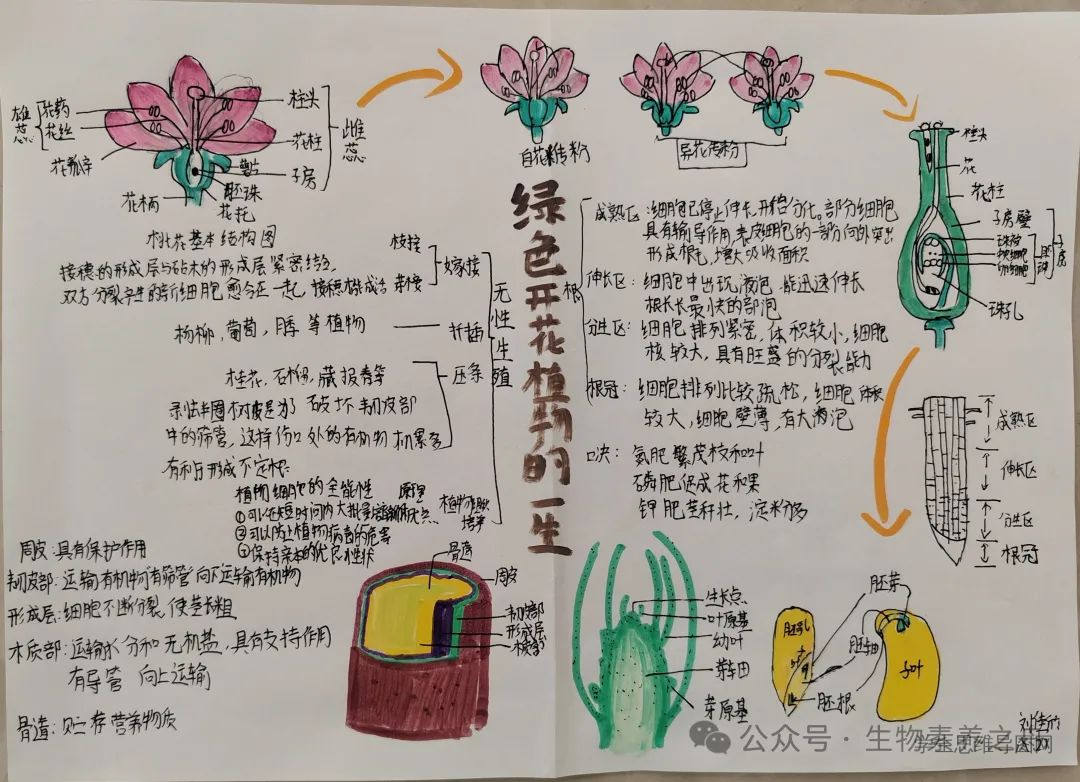 绿色开花植物的一生
雄蕊
花药
花丝
花瓣
花柄
柱头
花柱
子房
雌蕊
胚珠
花托
桃花基本结构图
自花传粉
异花传粉
柱头
花柱
子房壁
珠孔
子房
无性生殖
嫁接
枝接
芽接
接穗的形成层与砧木的形成层紧密结合,
双方分裂产生的新细胞愈合在一起,
扦插
杨柳,葡萄,月季等植物
压条
桂花,石榴,
破坏韧皮部
中的筛管,这样伤口处的有机物积累多
有利于形成不定根.
植物细胞的全能性 原理
优点
②可以防止植物病毒的危害
③保持亲本的优良性状
根
成熟区:细胞已停止伸长,开始分化。部分细胞
具有输导作用,表皮细胞的一部分向外突出
形成根毛,增大吸收面积
伸长区:细胞中出现液泡,能迅速伸长
根长长最快的部位
分生区:细胞排列紧密,体积较小,细胞
核较大,具有旺盛的分裂能力
根冠:细胞排列比较疏松,细胞体积
较大,细胞壁薄,有大液泡
口决:氮肥繁茂枝和叶
磷肥促成花和果
钾肥茎秆壮,淀粉多
成熟区
伸长区
分生区
根冠
周皮:具有保护作用
韧皮部:运输有机物有筛管向下运输有机物
形成层:细胞不断分裂,使茎长粗
木质部:运输水分和无机盐,具有支持作用
有导管 向上运输
骨遀:贮存营养物质
周皮
韧皮部
形成层
生长点
叶原基
幼叶
芽轴
芽原基
胚芽
胚乳
胚轴
胚根
子叶
公众号·生物素养之